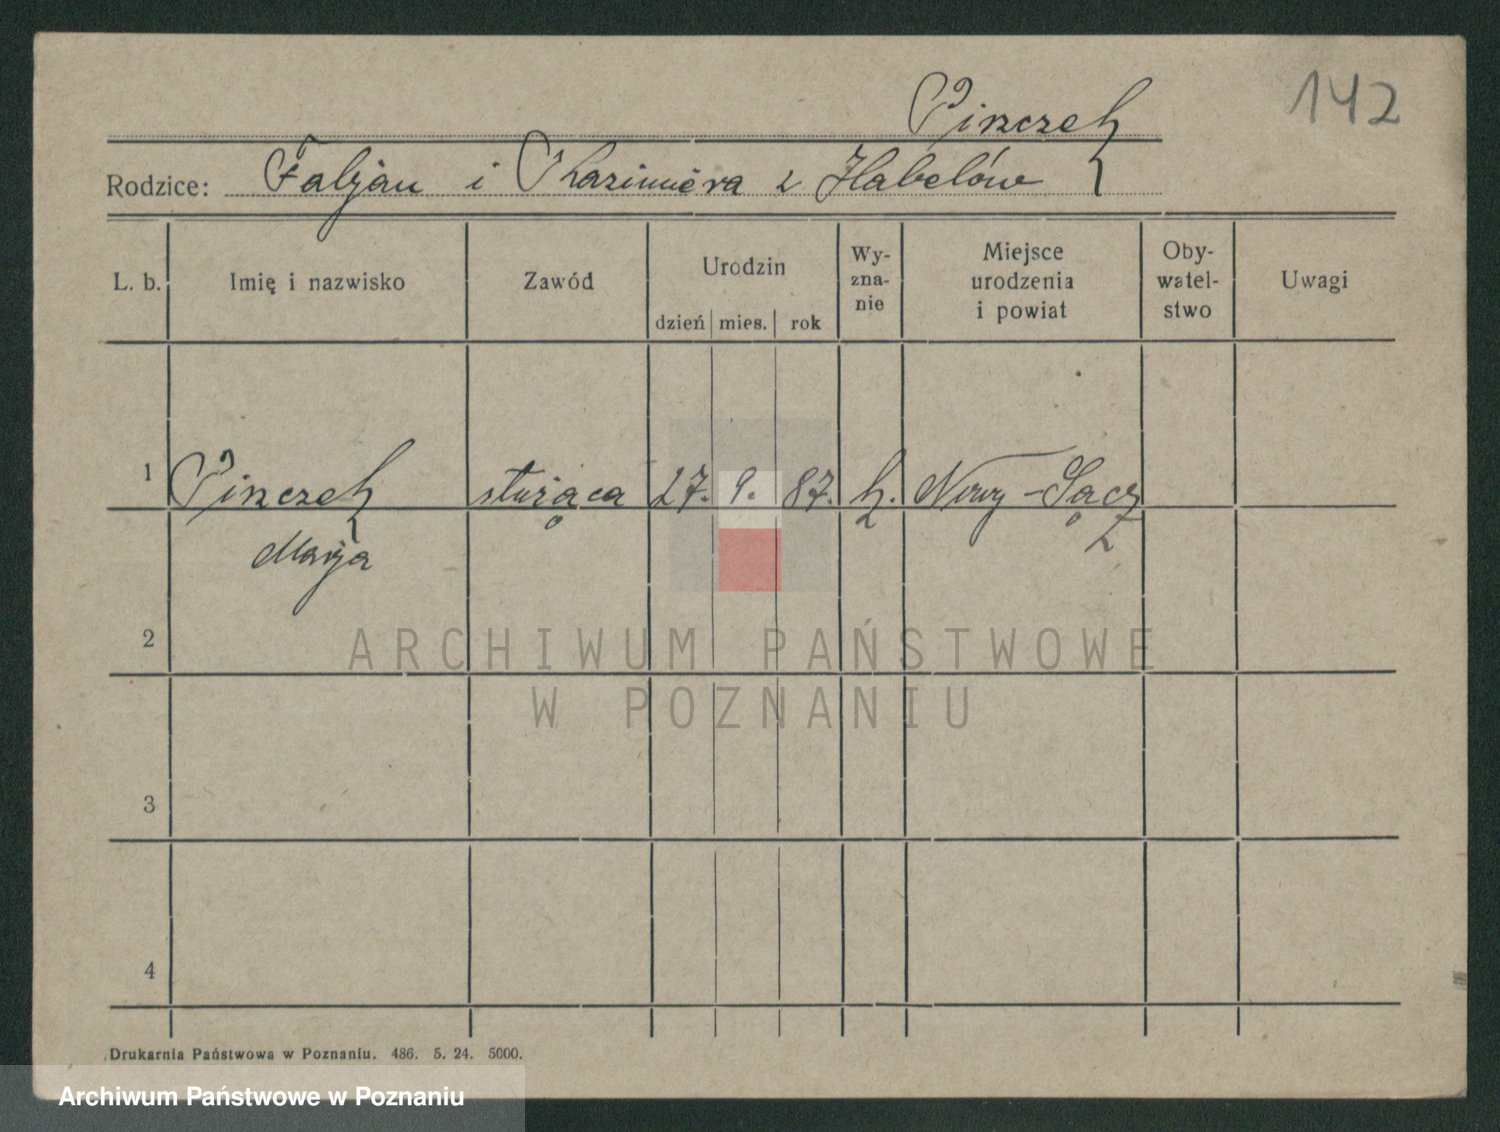 142
Pinczek
Rodzice: Faljan i Kazimiera z Habelów
L. b. Imię i nazwisko Zawód Urodzin dzień mies. rok Wy-zna-nie Miejsce urodzenia i powiat Oby-watel-stwo Uwagi
1 Pinczek służąca 27. 9. 87. k. Nowy-Sącz
Marja
2
ARCHIWUM PAŃSTWOWE
W POZNANIU
3
4
Drukarnia Państwowa w Poznaniu. 486. 5. 24. 5000.
Archiwum Państwowe w Poznaniu